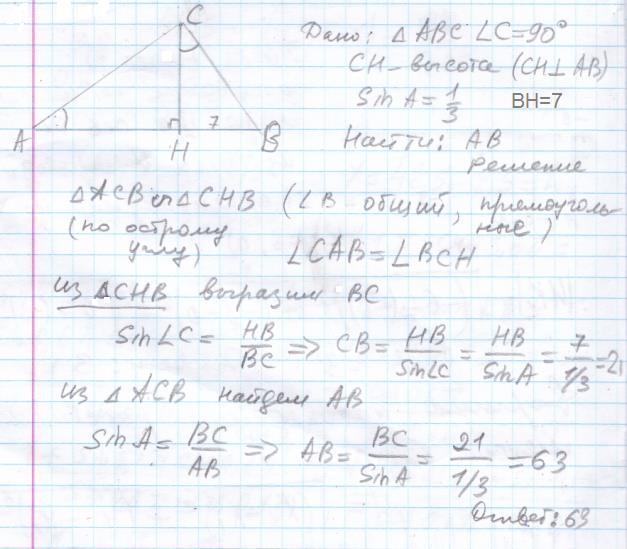 C
A
H
7
B
Дано: △ ABC ∠C=90°
CH – высота (CH⊥AB)
Sin A = 1/3 BH=7
Найти: AB
Решение
△ACB ∽ △CHB (∠B общий, прямоуголь-
(по острому ные)
углу) ∠CAB = ∠BCH
из △CHB выразим BC
Sin∠C = HB/BC => CB = HB/Sin∠C = HB/SinA = 7/1/3 = 21
из △ACB найдем AB
Sin A = BC/AB => AB = BC/SinA = 21/1/3 = 63
Ответ: 63